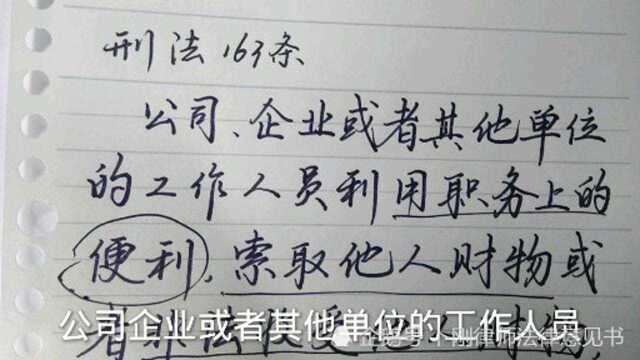 刑法163条
公司、企业或者其他单位
的工作人员利用职务上的
便利,索取他人财物或
公司企业或者其他单位的工作人员